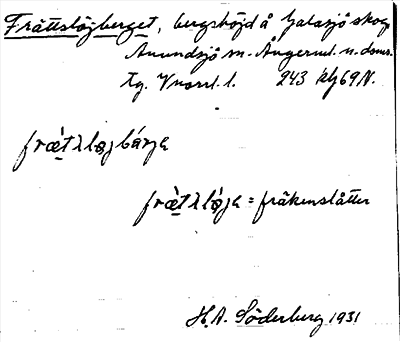 Frättslöjberget, bergshöjd å Galasjö skog
Anundsjö sn. Ångerml. n. doms.
tg. Vnorrl. l. 243 kfj 69 N.
fræ̀tsløjbárja
fræ̀tsløja = fräkenslåtter
H. A. Söderberg 1931